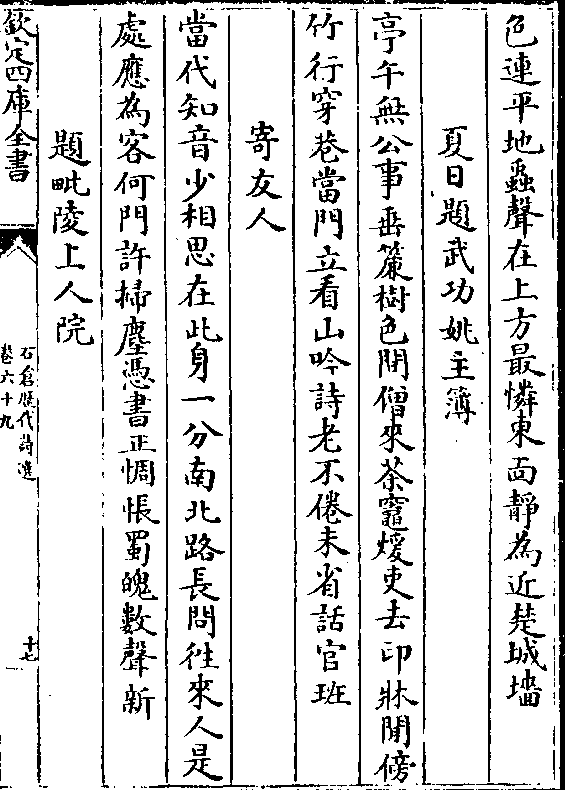 色連平地蟲聲在上方最憐東面靜為近楚城墻
夏日題武功姚主簿
亭午無公事垂簾樹色間僧來茶竈煖吏去印牀閒傍
竹行穿巷當門立看山吟詩老不倦未省話官班
寄友人
當代知音少相思在此身一分南北路長問徃來人是
處應為客何門許掃塵憑書正惆悵蜀魄數聲新
題毗陵上人院
欽定四庫全書
石倉歷代詩選
卷六十九
十七